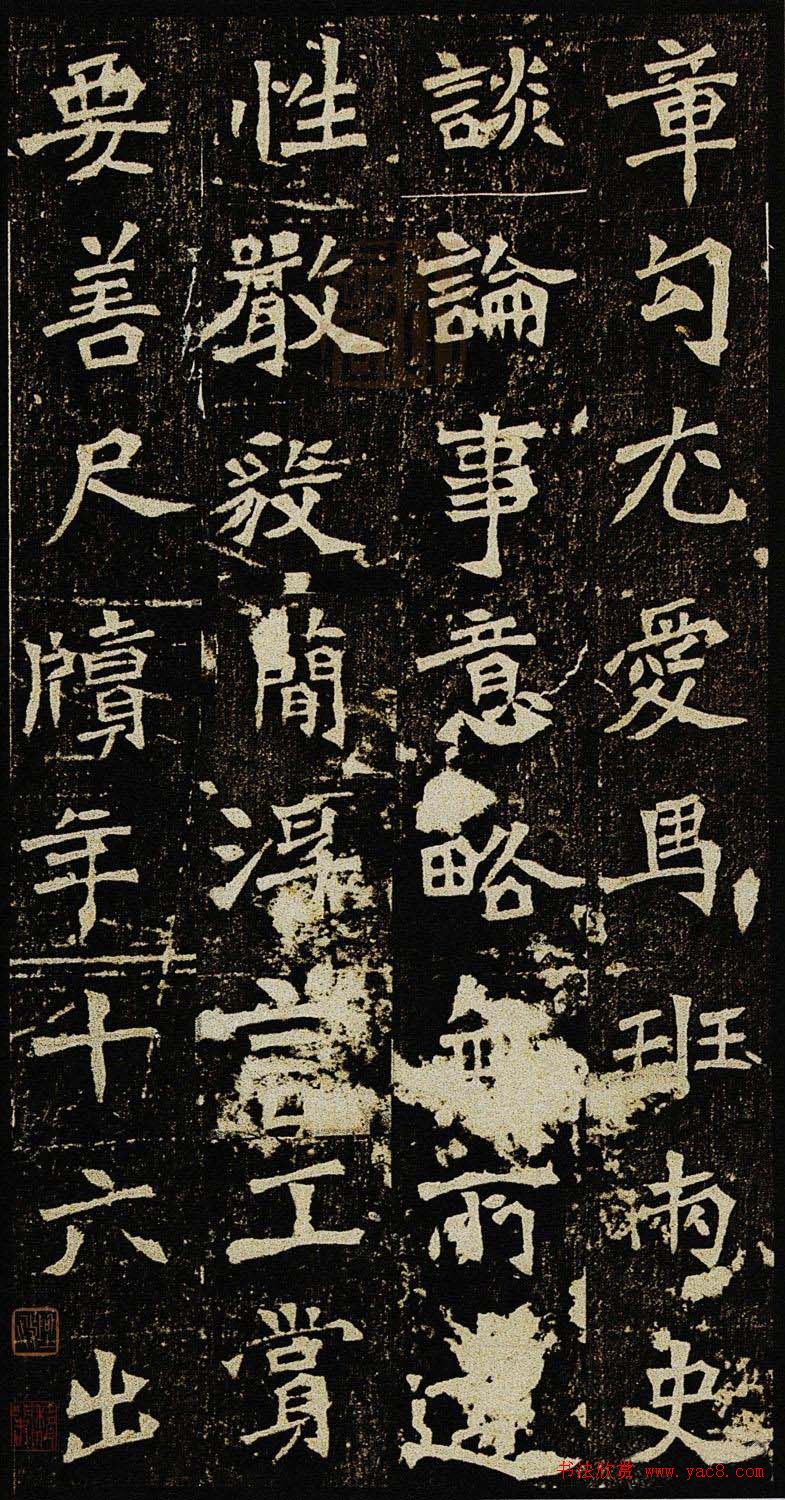 章句尤愛馬班兩史
談論事意略無所遺
性嚴毅簡淳言工賞
要善尺牘年十六出
书法欣赏 www.yac8.com